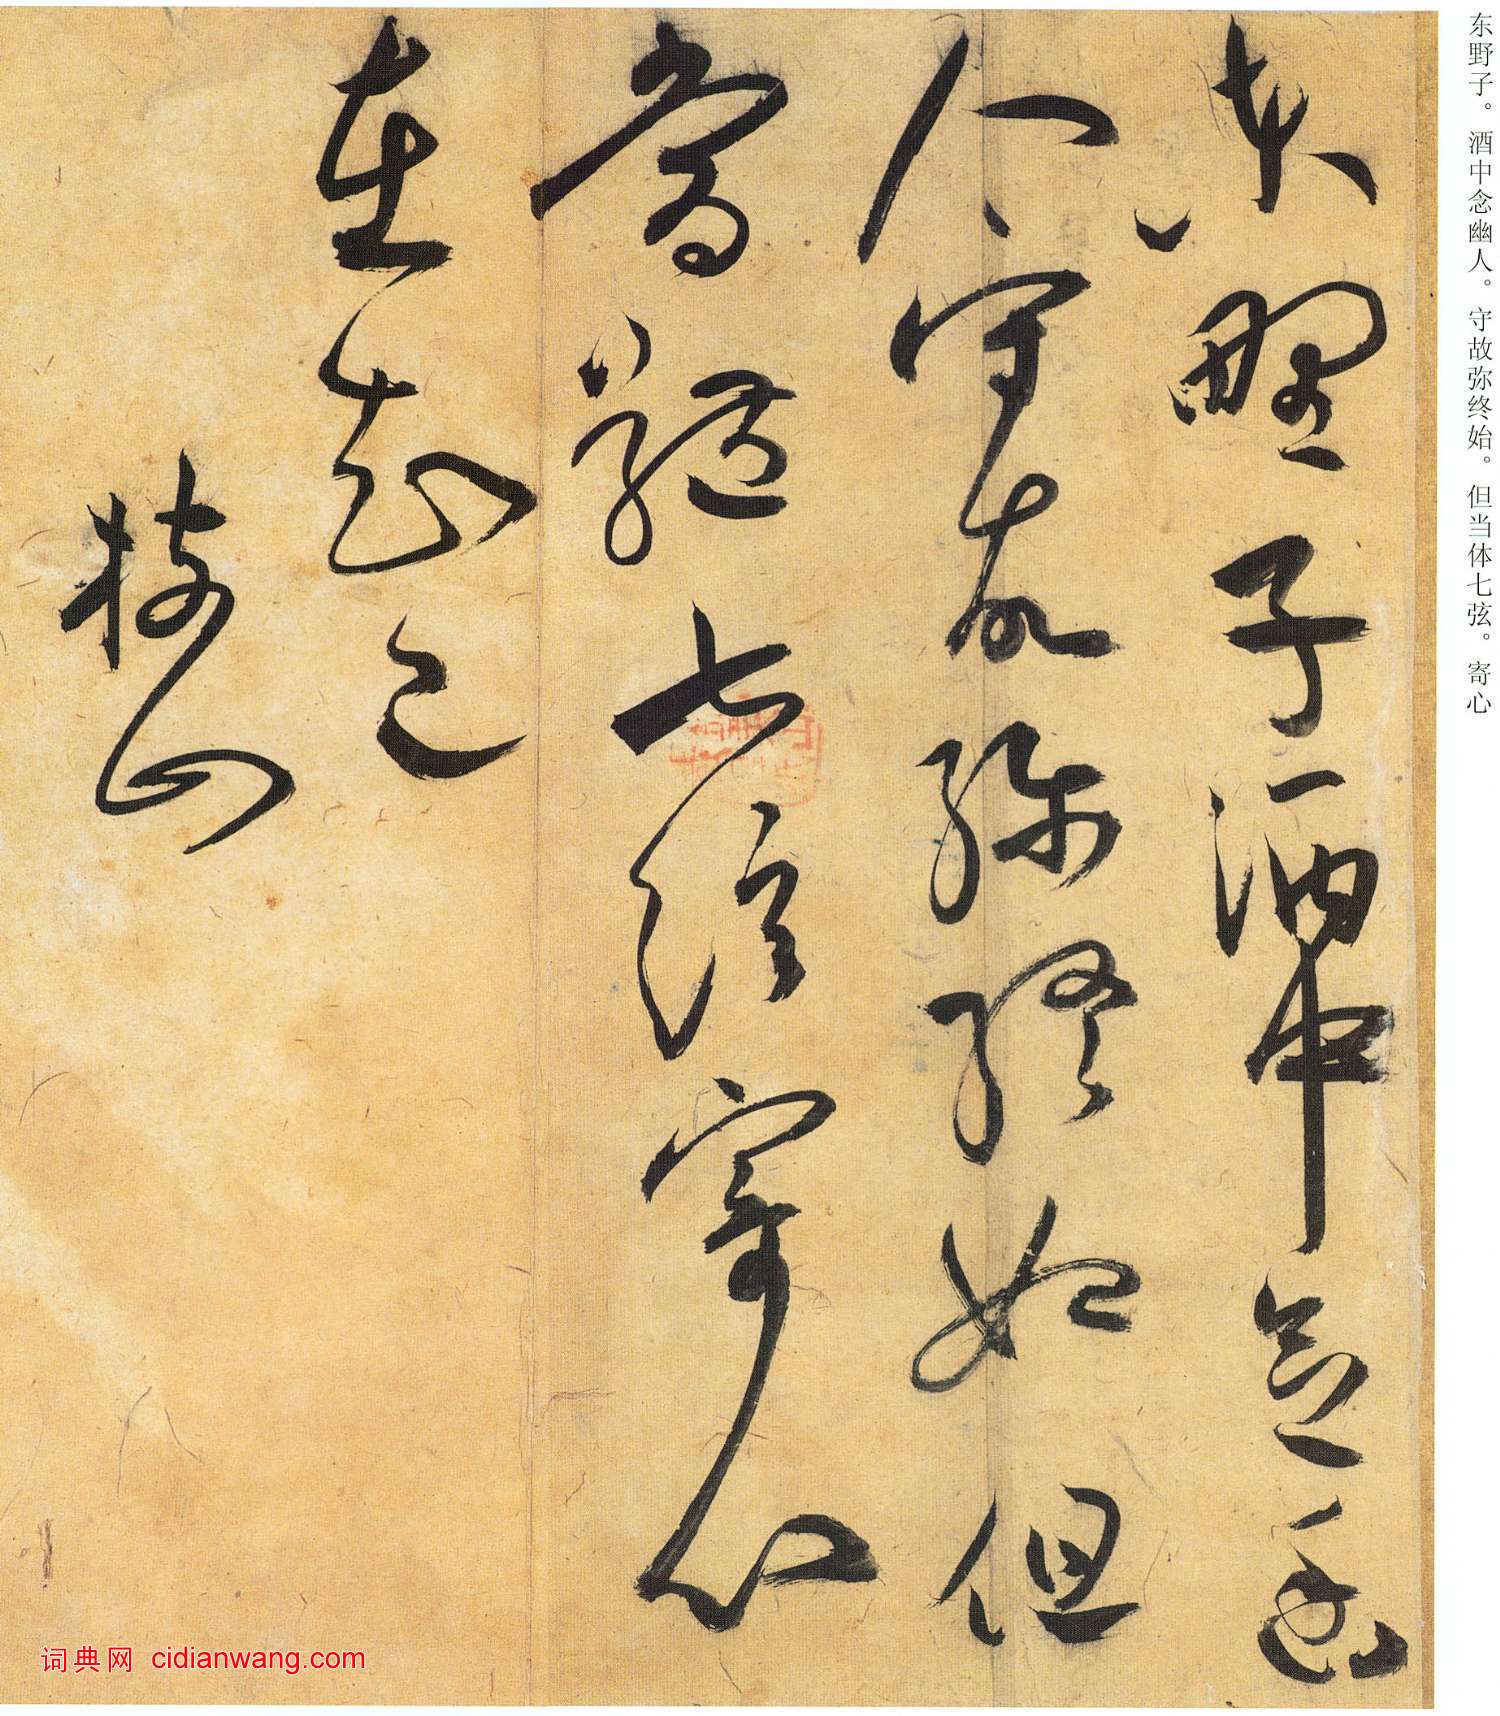 东野子。酒中念幽人。守故弥终始。但当体七弦。寄心
東野子酒中念幽
人守故弥終始但
當體七弦寄心
在知己
枝山
词典网 cidianwang.com